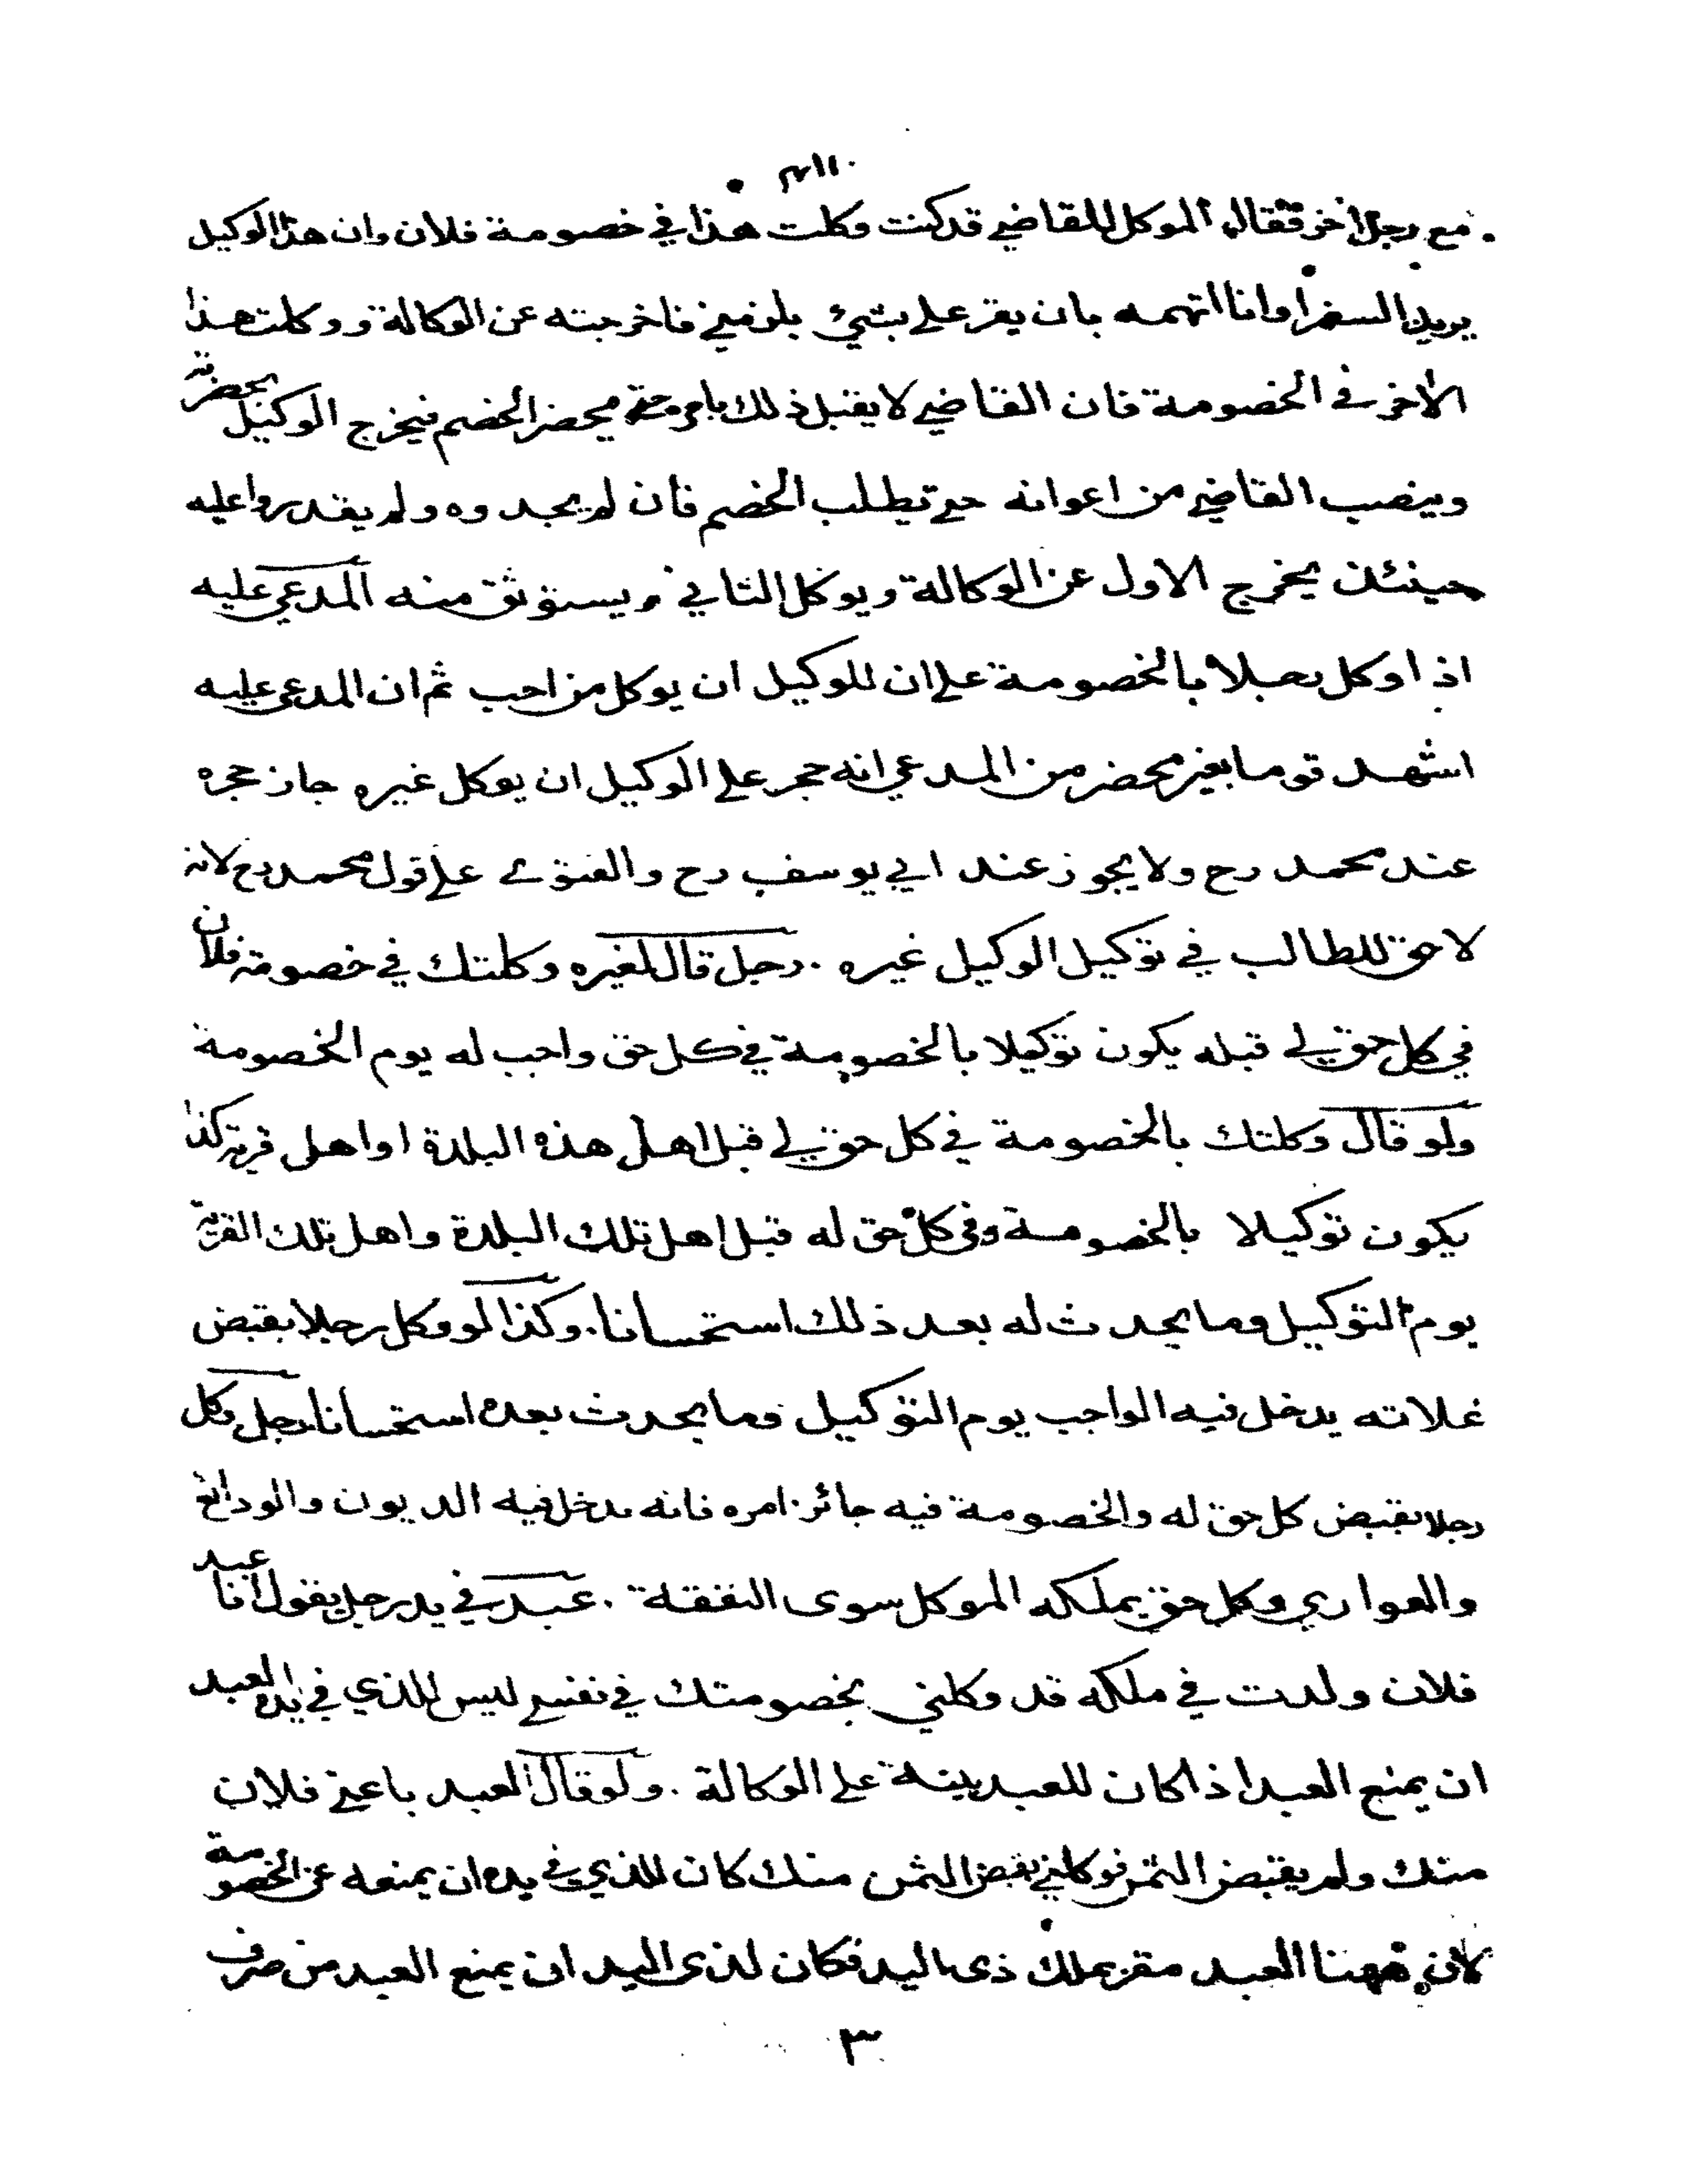 مع رجل اخر فقال الموكل للقاضي قد كنت وكلت هذا في خصومة فلان وان هذا الوكيل
يريد السفر اوانا اتهمه بان يقر علي بشئ يلزمني فاخرجته عن الوكالة ووكلت هذا
الاخر في الخصومة فان القاضي لا يقبل ذلك يامر حتى يحضر الخصم فيخرج الوكيل بحضرته
وينصب القاضي من اعوانه حتى يطلب الخصم فان لم يجدوه ولم يقدروا عليه
حينئذ يخرج الاول عن الوكالة ويوكل الثاني ويستوثق منه المدعى عليه
اذا وكل رجلا بالخصومة على ان للوكيل ان يوكل من احب ثم ان المدعى عليه
اشهد قوما بغير محضر من المدعي انه حجر على الوكيل ان يوكل غيره جاز حجره
عند محمد رح ولا يجوز عند ابي يوسف رح والفتوى على قول محمد رح لانه
لا حق للطالب في توكيل الوكيل غيره . رجل قال لغيره وكلتك في خصومة فلان
في كل حق لي قبله يكون توكيلا بالخصومة في كل حق واجب له يوم الخصومة
ولو قال وكلتك بالخصومة في كل حق لي قبل اهل هذه البلدة او اهل قرية كذا
يكون توكيلا بالخصومة وفي كل حق له قبل اهل تلك البلدة واهل تلك القرية
يوم التوكيل وما يحدث له بعد ذلك استحسانا . وكذا لو وكل رجلا بقبض
غلاته يدخل فيه الواجب يوم التوكيل وما يحدث بعده استحسانا رجل وكل
رجلا بقبض كل حق له والخصومة فيه جائز امره فانه يدخل فيه الديون والودائع
والعواري وكل حق يملكه الموكل سوى النفقة . عبد في يد رجل يقول انا عبد
فلان ولدت في ملكه قد وكلني بخصومتك في نفسي ليس للذي في يده العبد
ان يمنع العبد اذا كان للعبد بينة على الوكالة . ولو قال العبد باعني فلان
منك ولم يقبض الثمن فوكلني بقبض الثمن منك كان للذي في يده ان يمنعه عن الخصومة
لان ههنا العبد مقر بملك ذى اليد فكان لذى اليد ان يمنع العبد من صرف
٣